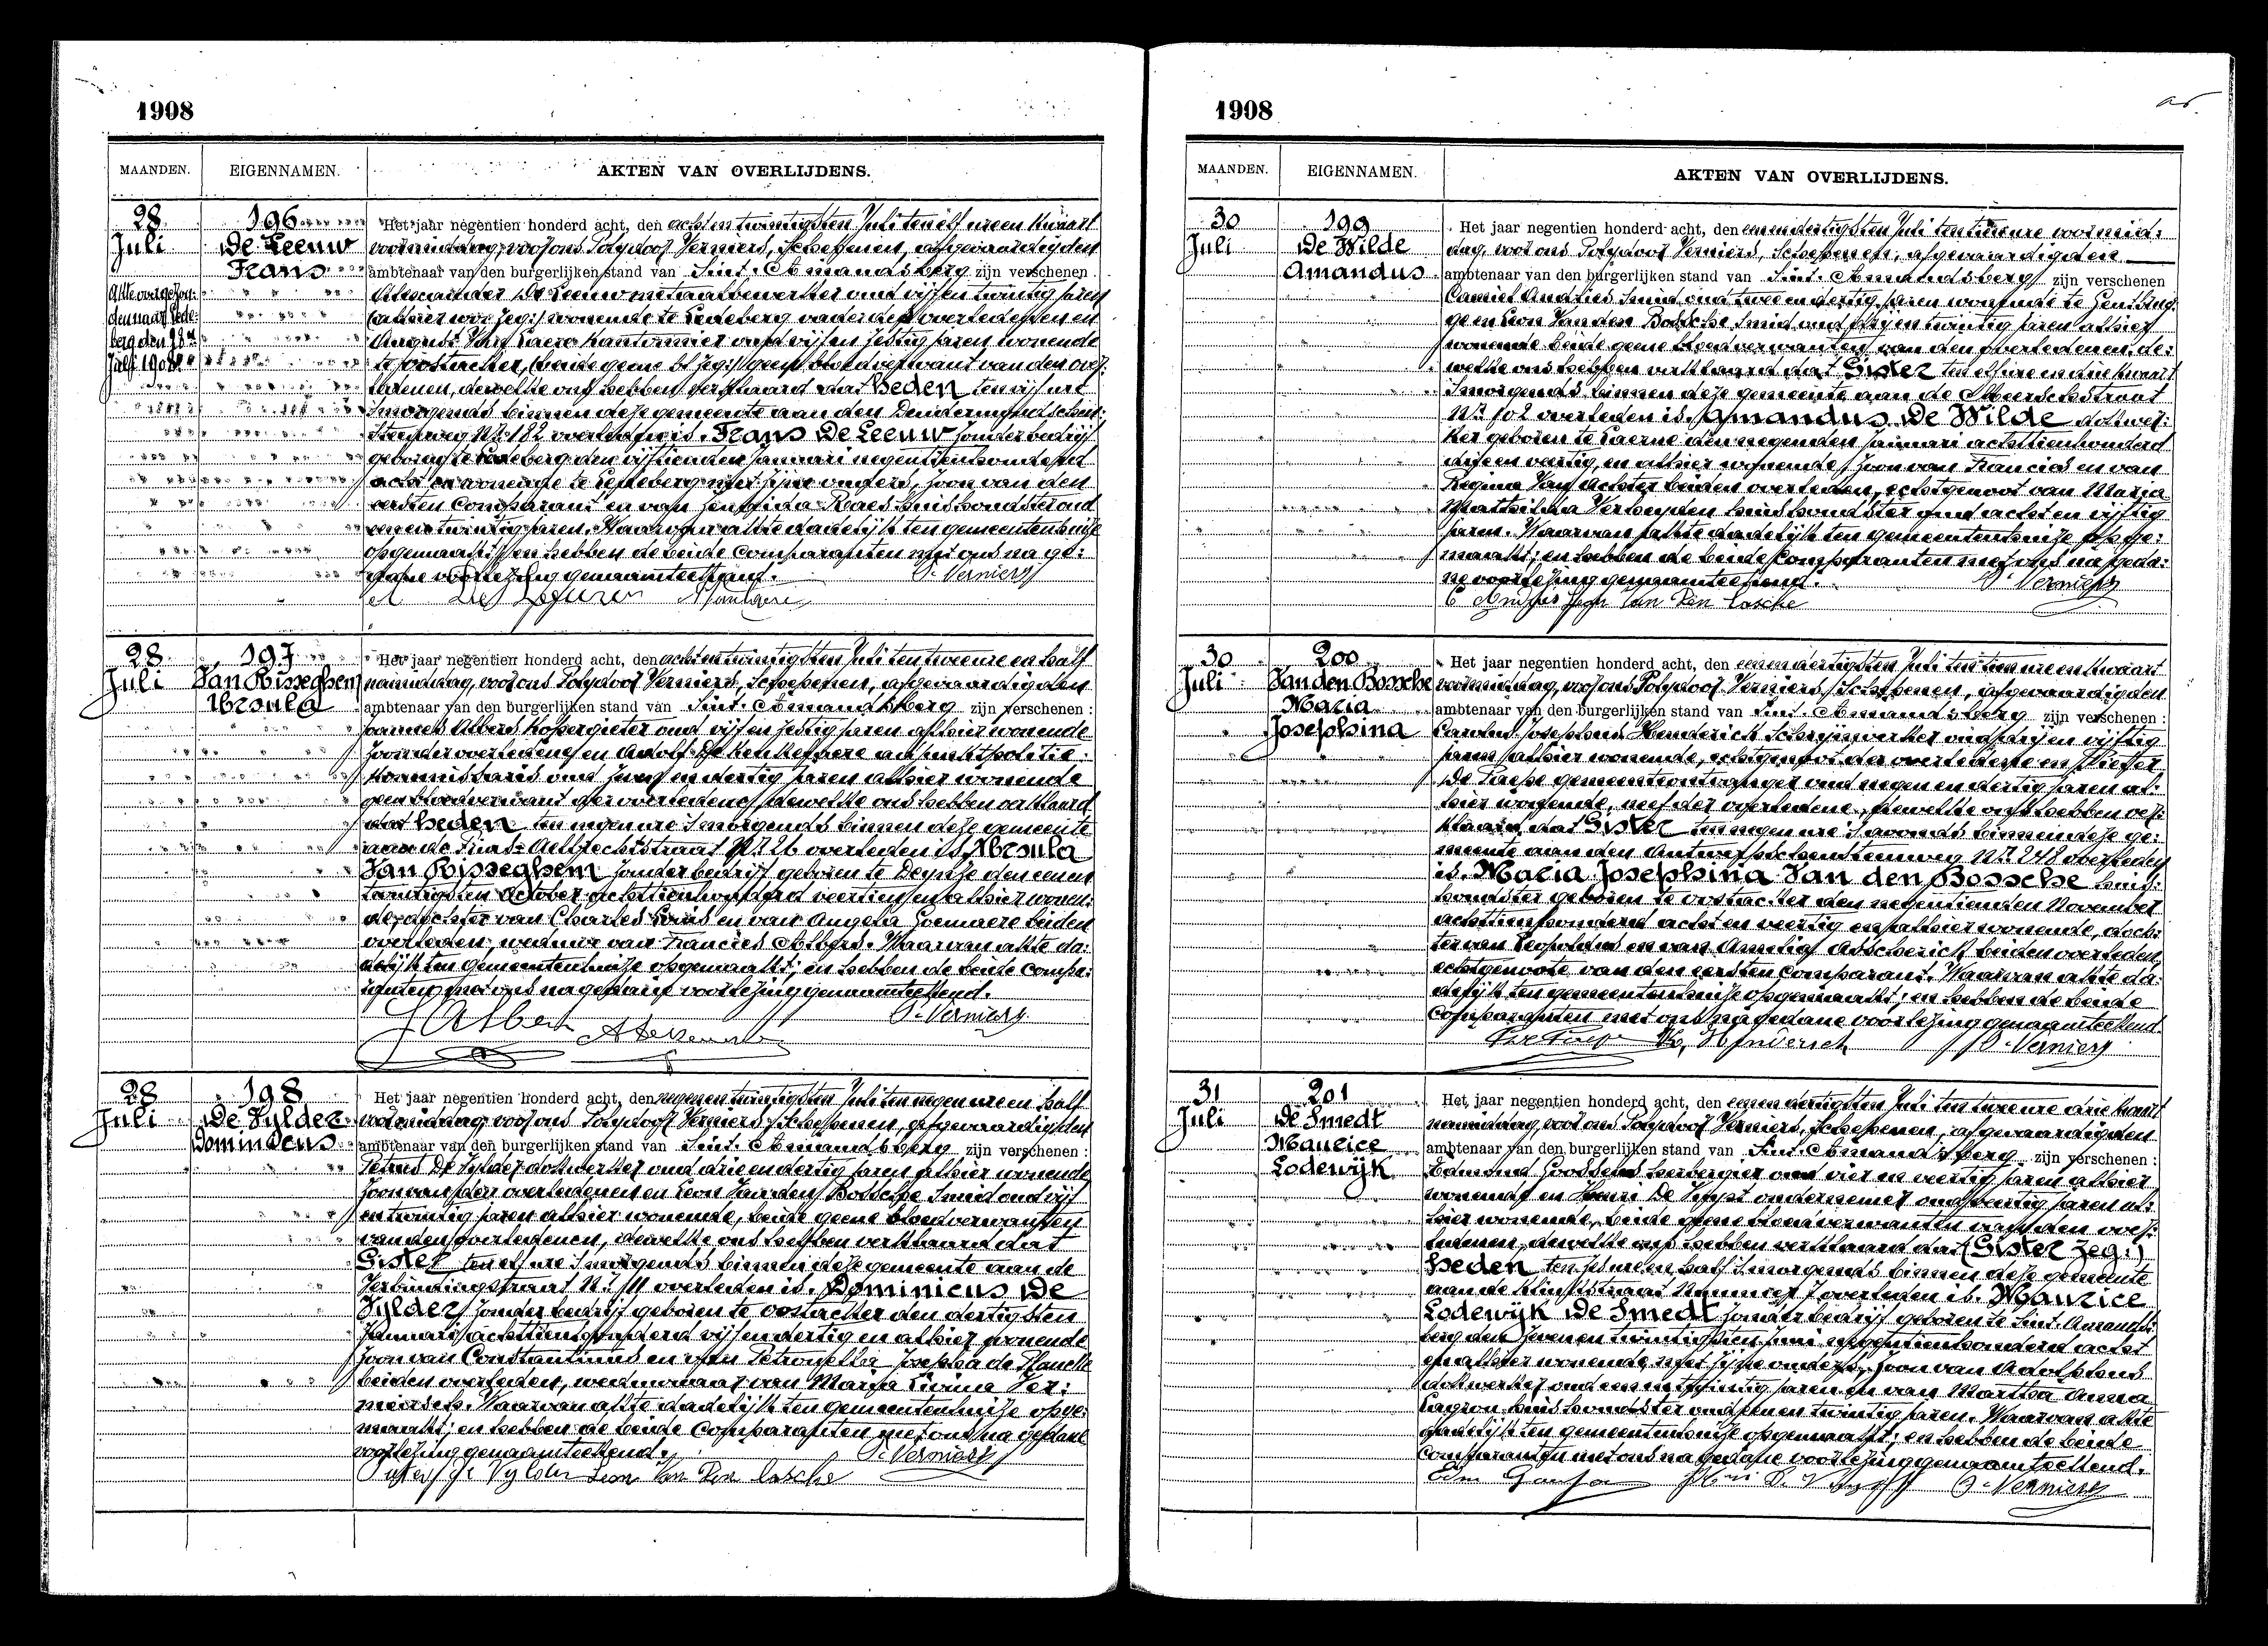 1908
MAANDEN. EIGENNAMEN. AKTEN VAN OVERLIJDENS.
28 Juli
196
De Leeuw
Frans
Akte overgezon:
den naar Lede:
berg den 28n
Juli 1908
Het jaar negentien honderd acht, den acht en twintigsten Juli ten elf ure en kwaart
voormiddag, voor ons Polydoor Verniers, Schepenen, afgevaardigden
ambtenaar van den burgerlijken stand van Sint-Amandsberg zijn verschenen
Alexander De Leeuw metaalbewerker oud vijf en twintig jaren
wonende te Ledeberg vader des overledenen en
August Van Laere kantonnier oud vijf en zestig jaren wonende
te Oostacker, geen bloedverwant van den over:
ledenen, dewelke ons hebben verklaard dat heden ten vijf ure
smorgends binnen deze gemeente aan den Dendermondschen:
steenweg Nr. 182 overleden is. Frans De Leeuw zonder bedrijf
geboren te Ledeberg den vijftienden Januari negentienhonderd
acht en wonende te Ledeberg met zijne ouders, zoon van den
eersten Comparant en van Zenobida Raes huishoudster oud
twintig jaren. Waarvan akte dadelijk ten gemeentenhuize
opgemaakt; en hebben de beide Comparanten met ons na ge:
dane voorlezing genaamteekend. P. Verniers
28 Juli
197
Van Bisseghem
Ursula
Het jaar negentien honderd acht, den acht en twintigsten Juli ten twee ure en half
namiddag, voor ons Polydoor Verniers, Schepenen, afgevaardigden
ambtenaar van den burgerlijken stand van Sint-Amandsberg zijn verschenen :
Joannes Albers kopergieter oud vijf en zestig jaren alhier wonende
zoon der overledene en Adolf adjunkt politie:
kommissaris oud en dertig jaren alhier wonende
geen bloedverwant der overledene, dewelke ons hebben verklaard
dat heden ten negen ure smorgends binnen deze gemeente
aan de Sint-Aelbrechtstraat Nr. 26 overleden is Ursula
Van Bisseghem zonder bedrijf geboren te Deynze den eenen
twintigsten October achttienhonderd veertien en alhier wonen:
de, dochter van Charles Louis en van Angela Goemaere beiden
overleden, weduwe van Francies Albers. Waarvan akte da:
delijk ten gemeentenhuize opgemaakt; en hebben de beide Compa:
ranten met ons na gedane voorlezing genaamteekend.
J Albers P. Verniers
28 Juli
198
De Vylder
Dominicus
Het jaar negentien honderd acht, den negen en twintigsten Juli ten negen ure en half
voormiddag, voor ons Polydoor Verniers, Schepenen, afgevaardigden
ambtenaar van den burgerlijken stand van Sint-Amandsberg zijn verschenen :
Petrus De Vylder dokwerker oud drie en dertig jaren alhier wonende
zoon van den overledenen en Leon Van den Bossche Smid oud vijf
en twintig jaren alhier wonende, beide geene bloedverwanten
van den overledenen, dewelke ons hebben verklaard dat
Gister ten elf ure smorgends binnen deze gemeente aan de
Verbindingstraat Nr. 111 overleden is. Dominicus De
Vylder zonder bedrijf geboren te Oostacker den dertigsten
Januari achttienhonderd vijf en dertig en alhier wonende
zoon van Constantinus en van Petronella Josepha de Planck
beiden overleden, weduwnaar van Maria Livina Ver:
miersch. Waarvan akte dadelijk ten gemeentenhuize opge:
maakt; en hebben de beide Comparanten met ons na gedane
voorlezing genaamteekend. P. Verniers
Pieter De Vylder Leon Van Den Bosche
1908
MAANDEN. EIGENNAMEN. AKTEN VAN OVERLIJDENS.
30 Juli
199
De Wilde
Amandus
Het jaar negentien honderd acht, den eenendertigsten Juli ten tien ure voormid:
dag, voor ons Polydoor Verniers, Schepenen, afgevaardigden
ambtenaar van den burgerlijken stand van Sint-Amandsberg zijn verschenen
Camiel Andries Smid oud twee en dertig jaren wonende te Gentbrug:
ge en Leon Van den Bossche Smid oud vijf en twintig jaren alhier
wonende beide geene bloedverwanten van den overledenen, de:
welke ons hebben verklaard dat Gister ten elf ure en drie kwart
smorgends binnen deze gemeente aan de Meerschstraat
Nr. 102 overleden is. Amandus De Wilde dokwer:
ker geboren te Laerne den negenden Januari achttienhonderd
drie en veertig, en alhier wonende, zoon van Francies en van
Regina Van Achter beiden overleden, echtgenoot van Maria
Mathilda Verheyden huishoudster oud acht en vijftig
jaren. Waarvan akte dadelijk ten gemeentenhuize opge:
maakt; en hebben de beide Comparanten met ons na geda:
ne voorlezing genaamteekend. P. Verniers
C Andries Leon Van Den Bosche
30 Juli
200
Van den Bossche
Maria
Josephina
Het jaar negentien honderd acht, den eenen dertigsten Juli ten tien ure en kwaart
voormiddag, voor ons Polydoor Verniers, Schepenen, afgevaardigden
ambtenaar van den burgerlijken stand van Sint-Amandsberg zijn verschenen :
Carolus Josephus Henderick Schrijnwerker oud en vijftig
jaren alhier wonende, echtgenoot der overledene en Pieter
De Paepe gemeenteontvanger oud negen en dertig jaren al:
hier wonende, neef der overledene, dewelke ons hebben ver:
klaard dat Gister ten negen ure s'avonds binnen deze ge:
meente aan den Antwerpschensteenweg Nr. 248 overleden
is. Maria Josephina Van den Bossche huis:
houdster geboren te Oostacker den negentienden November
achttienhonderd acht en veertig en alhier wonende, doch:
ter van Leopoldus en van Amelia Asscherick beiden overleden,
echtgenoote van den eersten comparant. Waarvan akte da:
delijk ten gemeentenhuize opgemaakt; en hebben de beide
Comparanten met ons na gedane voorlezing genaamteekend.
Henderick P. Verniers
31 Juli
201
De Smedt
Maurice
Lodewijk
Het jaar negentien honderd acht, den eenen dertigsten Juli ten twee ure drie kwart
namiddag, voor ons Polydoor Verniers, Schepenen, afgevaardigden
ambtenaar van den burgerlijken stand van Sint-Amandsberg zijn verschenen :
Edmond Goossens herbergier oud vier en veertig jaren alhier
wonende en Henri De Vuyst ondernemer oud veertig jaren al:
hier wonende, beide geene bloedverwanten van den over:
ledenen, dewelke ons hebben verklaard dat (Gister zeg:)
heden ten zes ure en half smorgends binnen deze gemeente
aan de straat Nummer 7 overleden is. Maurice
Lodewijk De Smedt zonder bedrijf geboren te Sint-Amands:
berg den zeven en twintigsten Juni negentienhonderd acht
en alhier wonende met zijne ouders, zoon van Adolphus
dokwerker oud een en twintig jaren en van Martha Anna
Lagrou huishoudster oud en twintig jaren. Waarvan akte
dadelijk ten gemeentenhuize opgemaakt; en hebben de beide
Comparanten met ons na gedane voorlezing genaamteekend.
P. Verniers